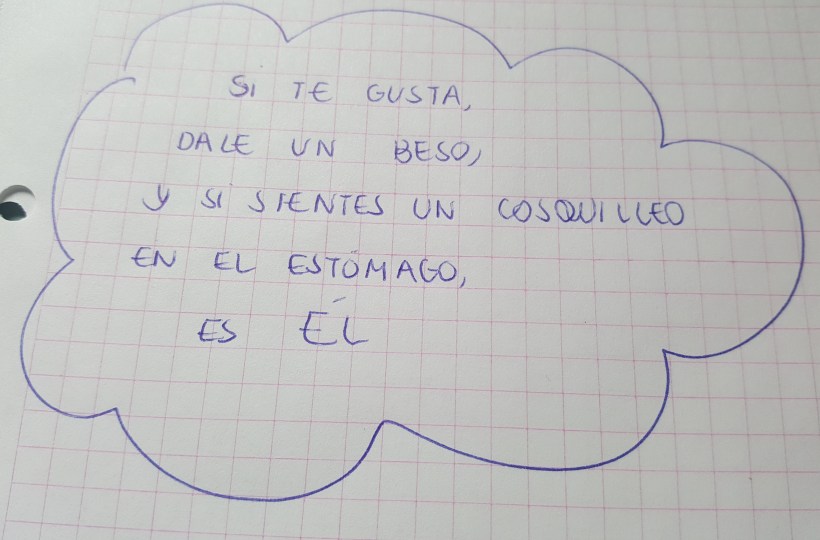 SI TE GUSTA,
DALE UN BESO,
Y SI SIENTES UN COSQUILLEO
EN EL ESTÓMAGO,
ES ÉL